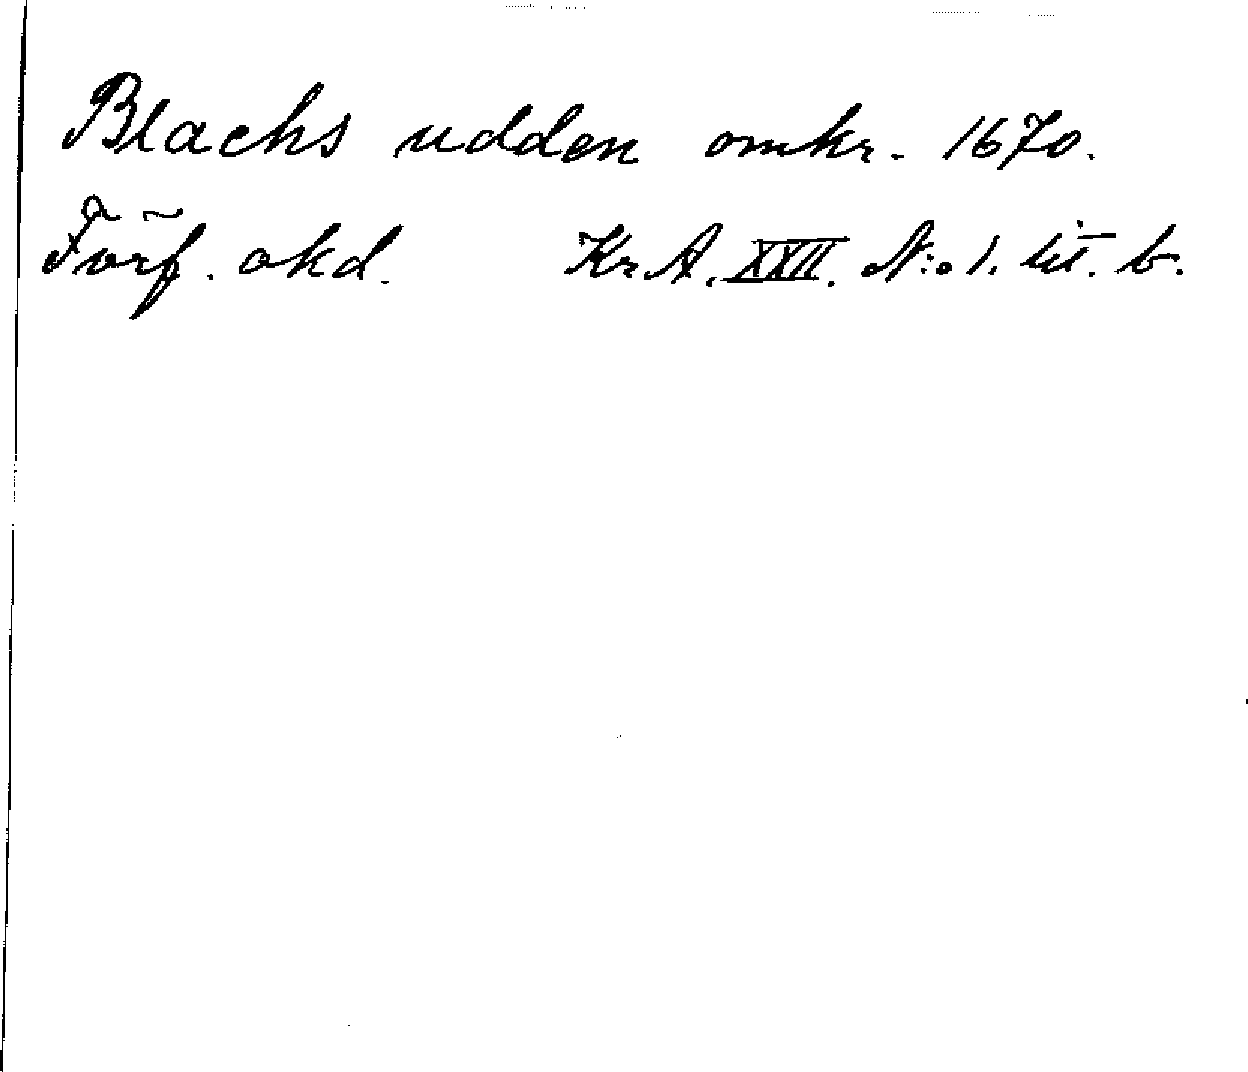 Blachs udden omkr. 1670.
Förf. okd. Kr A. XXII. N:o 1. litt. b.